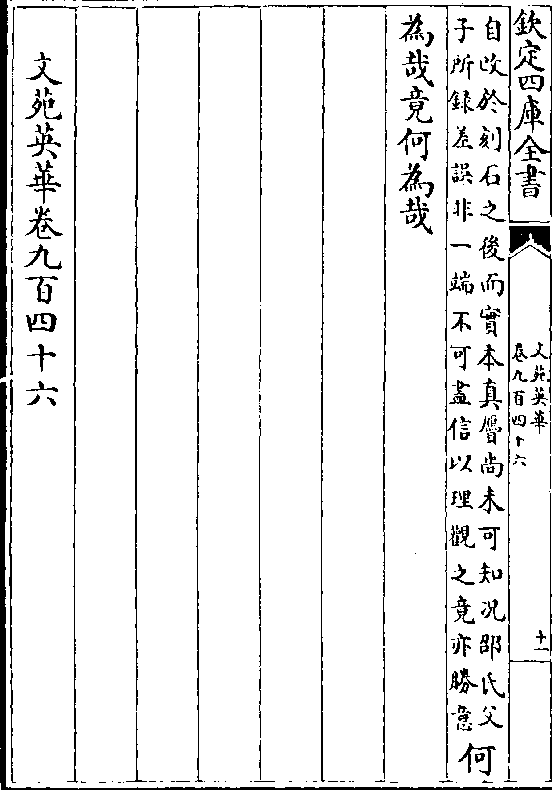 欽定四庫全書
文苑英華
卷九百四十六
十一
自改於刻石之後而實本真贗尚未可知况邵氏父
子所録差誤非一端不可盡信以理觀之竟亦勝意
何
為哉竟何為哉
文苑英華卷九百四十六